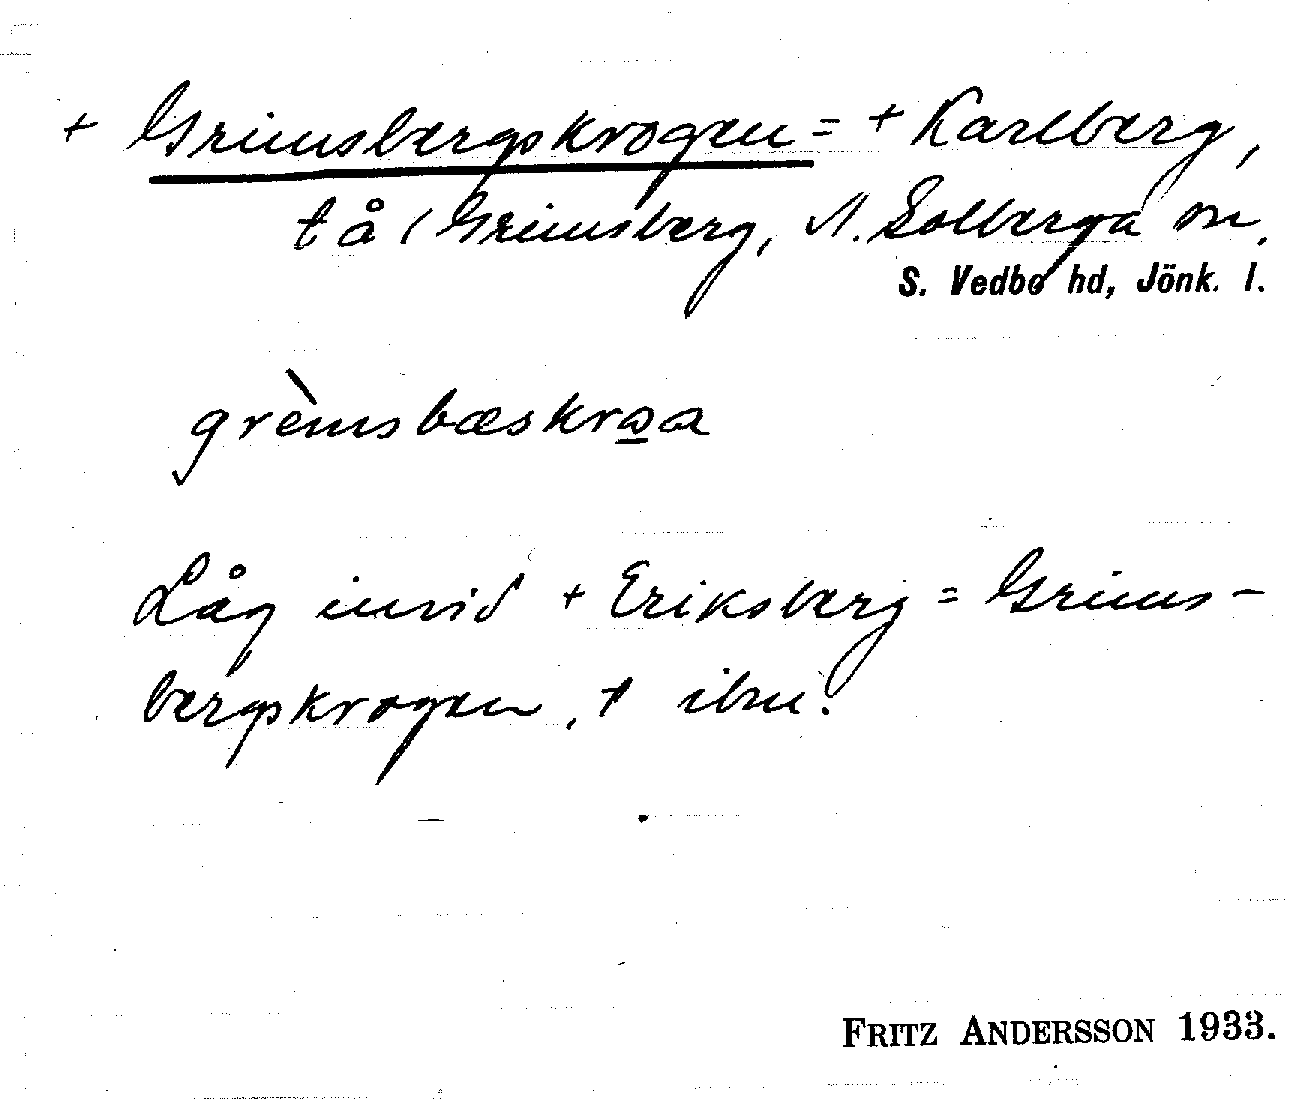 + Grimsbergskrogen = + Karlberg,
t å / Grimsberg, N. Solberga sn,
S. Vedbo hd, Jönk. l.
grèmsbæskroa
Låg invid + Eriksberg = Grims-
bergskrogen, t ibm.
FRITZ ANDERSSON 1933.